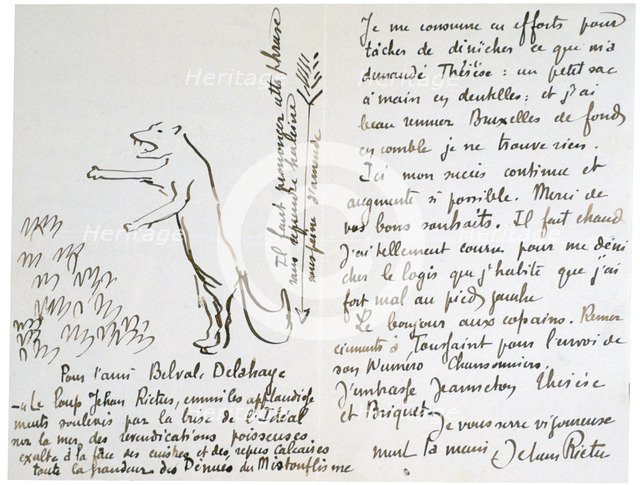 Il faut prononcer cette phrase
sans reprendre haleine
sous peine d'amende
Pour l'ami Belval-Delahaye
"Le loup Jehan Rictus, emmi les applaudisse
ments soulevés par la brise de l'Idéal
sur la mer des revendications poisseuses
exalte à la face des cuistres et des repus calcaires
toute la grandeur des Dénués du Mistouflisme
Je me consume en efforts pour
tâcher de dénicher ce que m'a
demandé Thérèse : un petit sac
à main en dentelles ; et j'ai
beau remuer Bruxelles de fond
en comble je ne trouve rien.
Ici mon succès continue et
augmente si possible. Merci de
vos bons souhaits. Il fait chaud
J'ai tellement couru pour me déni
cher le logis que j'habite que j'ai
fort mal au pied gauche
Le bonjour aux copains. Remer
ciements à Toussaint pour l'envoi de
son Numéro Chansonniers.
J'embrasse Jeanneton Thérèse
et Briquet.
Je vous serre vigoureuse
ment la main, Jehan Rictus
Heritage
Heritage
Heritage
Heritage